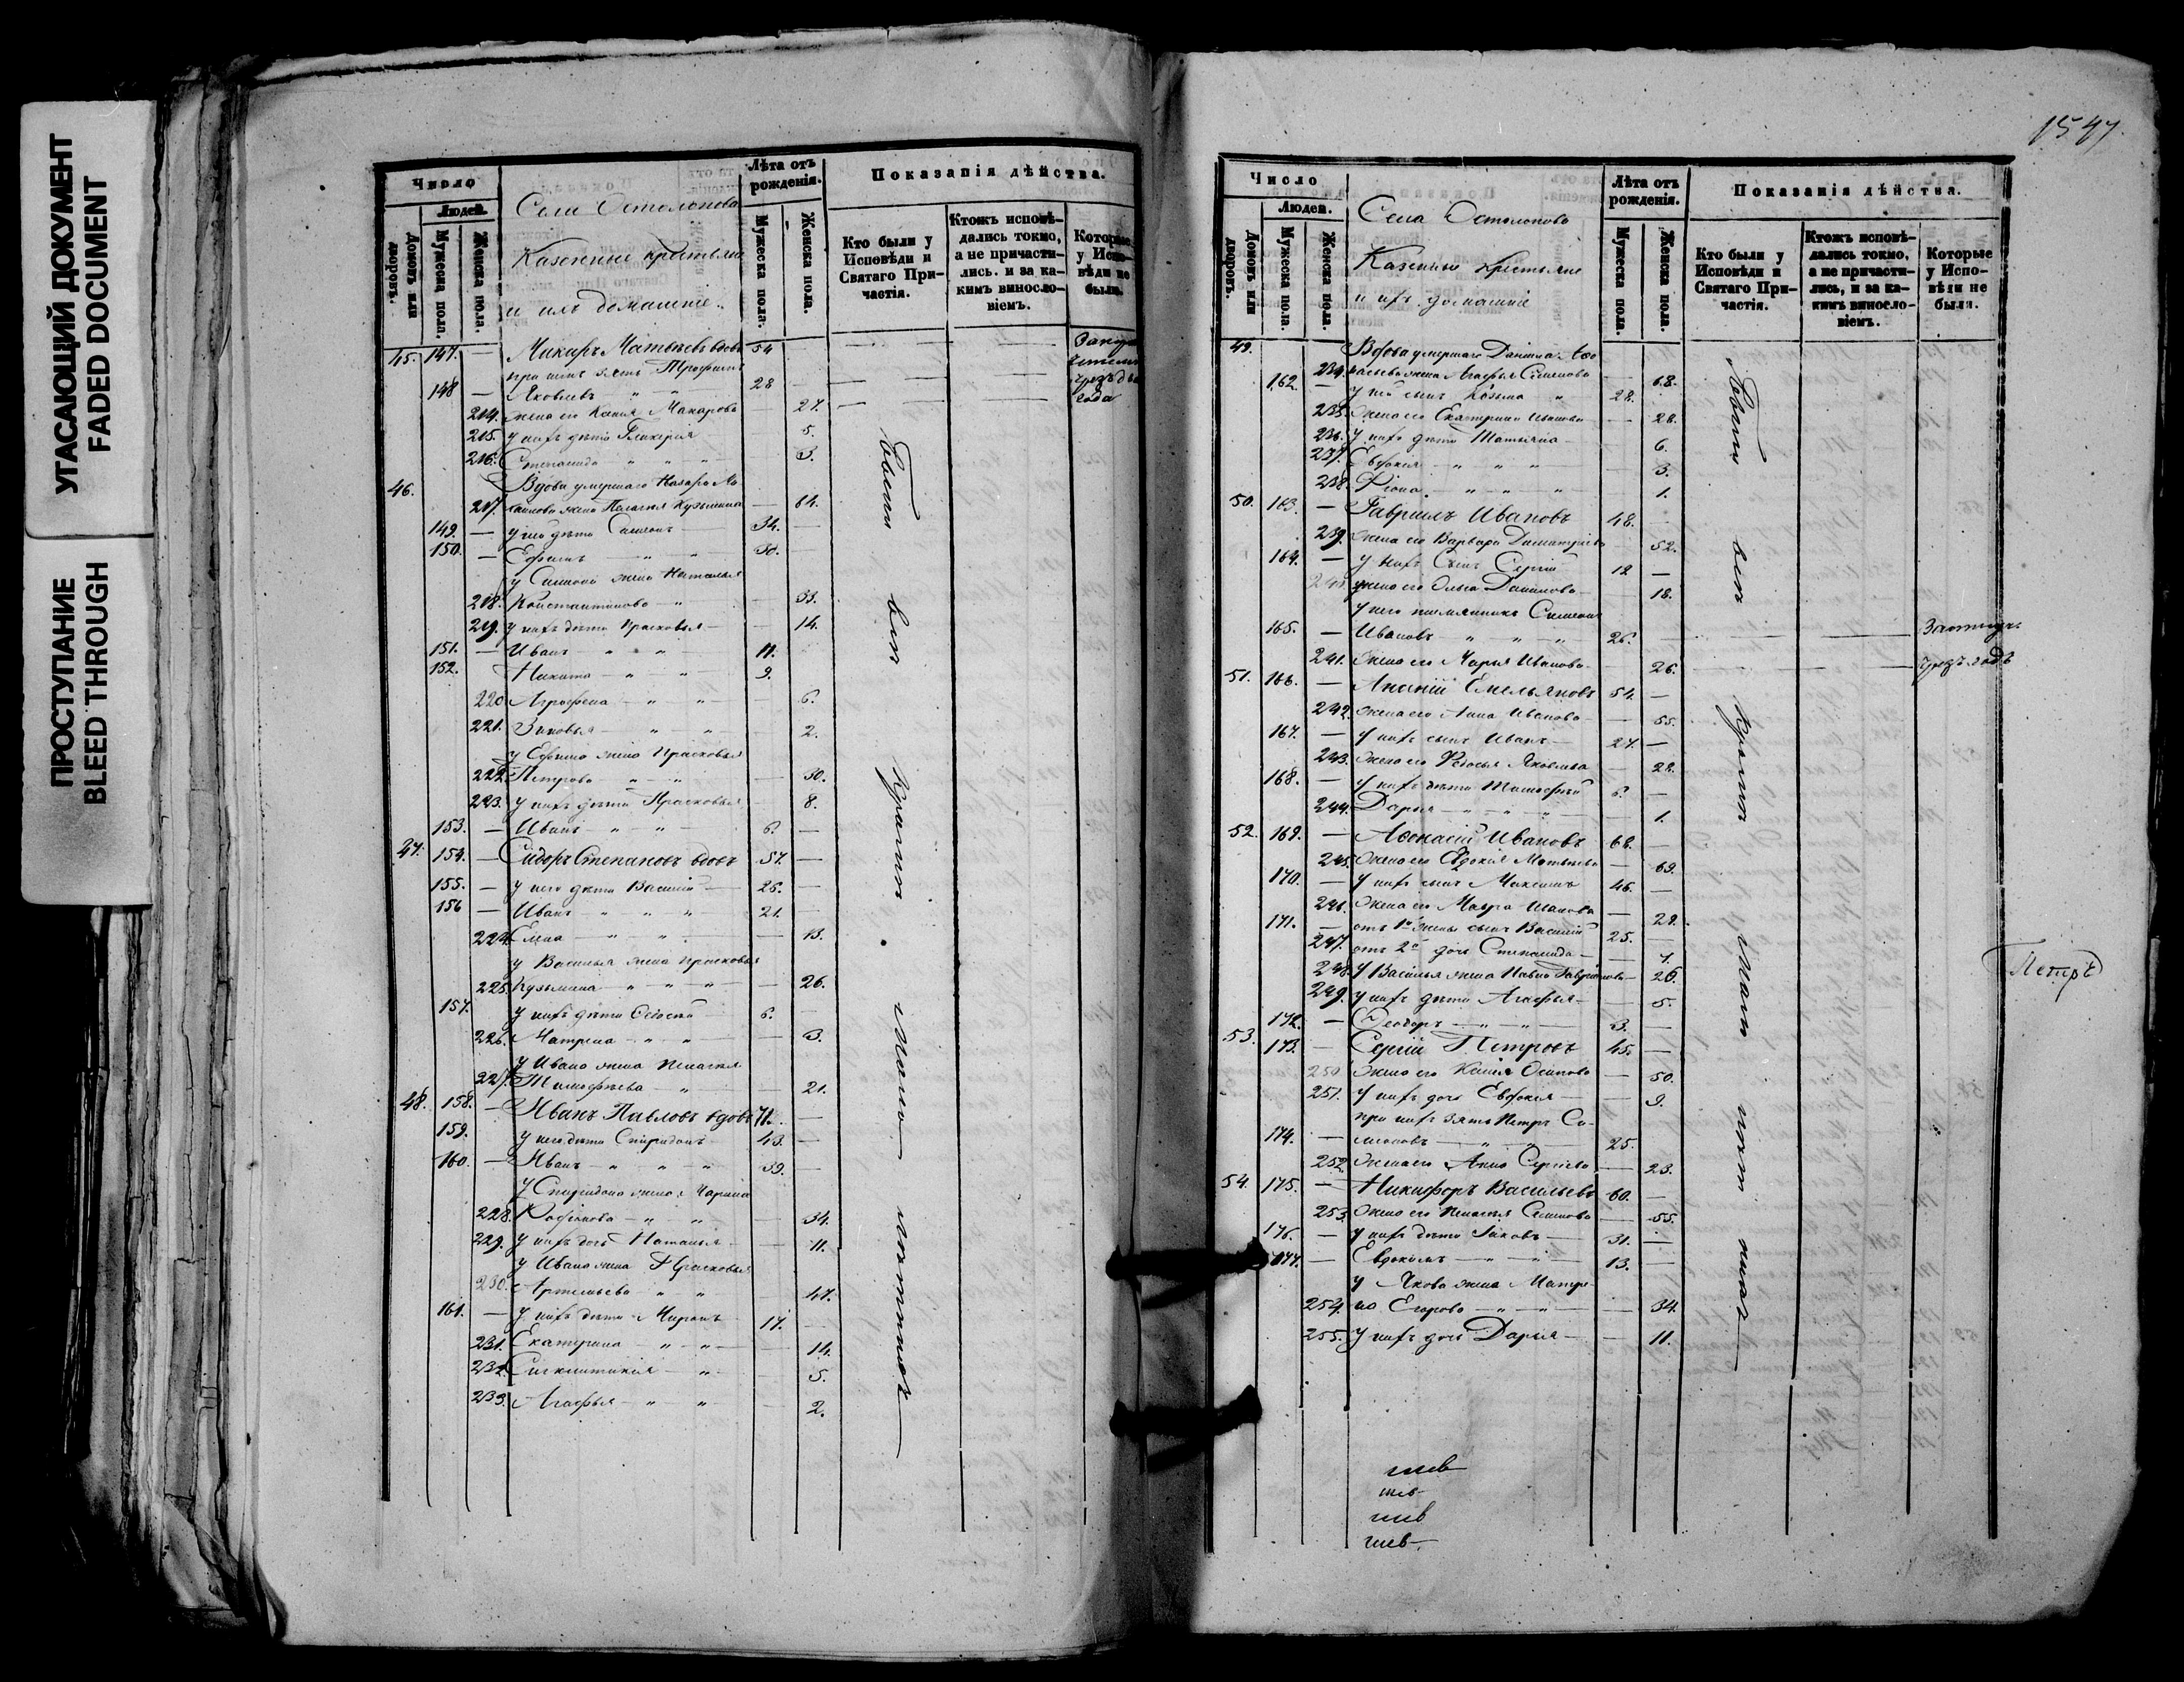 УГАСАЮЩИЙ ДОКУМЕНТ
FADED DOCUMENT
ПРОСТУПАНИЕ
BLEED THROUGH
Число
Людей.
Домовъ или дворовъ.
Мужеска пола.
Женска пола.
Села Остолопова
Казенные крестьяне
и ихъ домашніе.
Лѣта отъ рожденія.
Мужеска пола.
Женска пола.
Показанія дѣйства.
Кто были у Исповѣди и Святаго Причастія.
Ктожъ исповѣдались токмо, а не причастились. и за какимъ винословіемъ.
Которые у Исповѣди не были.
45. 147. — Макаръ Матвѣевъ вдовъ 54
при немъ зять Трофимъ
148 — Яковлевъ 28
214. жена его Ксенія Макарова 27.
215. у нихъ дѣти Гликерія 5.
216. Степанида 3.
46. Вдова умершаго Назара
217. жена Пелагея Кузьмина 64.
149. — у нее дѣти Симеонъ 34.
150. — Ефимъ 30.
у Симеона жена Наталья
218. Константинова 33.
219. у нихъ дѣти Прасковья 14.
151. — Иванъ 11.
152. Никита 9.
220 Агрофена 6.
221. Зиновья 2.
у Ефима жена Прасковья
222. Петрова 30.
223. у нихъ дѣти Прасковья 8.
153. — Иванъ 6.
47. 154. — Сидоръ Степановъ вдовъ 57. —
155. — у него дѣти Василій 25. —
156 — Иванъ 21.
224. Елена 13.
у Василья жена Прасковья
225. Кузьмина 26.
157. у нихъ дѣти 6.
226. Матрена 3.
у Ивана жена Пелагея
227. Тимофѣева 21.
48. 158. — Иванъ Павловъ вдовъ 71. —
159. у него дѣти Спиридонъ 43. —
160. — Иванъ 39.
у Спиридона жена Марина
228. 34.
229. у нихъ дочь Наталья 11.
у Ивана жена Прасковья
230. Артемьева 47.
161. — у нихъ дѣти Миронъ 17.
231. Екатерина 14.
232. Сигклитикія 5.
233. Агафья 2.
Были вси
года
1547.
Число
Людей.
Домовъ или дворовъ.
Мужеска пола.
Женска пола.
Села Остолопово
Казенные крестьяне
и ихъ домашніе
Лѣта отъ рожденія.
Мужеска пола.
Женска пола.
Показанія дѣйства.
Кто были у Исповѣди и Святаго Причастія.
Ктожъ исповѣдались токмо, а не причастились, и за какимъ винословіемъ.
Которые у Исповѣди не были.
49. Вдова умершаго Даніила
234. жена Агафья Семенова 68.
162. — у ней сынъ Козьма 28.
235. Жена его Екатерина Иванова 28.
236. у нихъ дѣти Татьяна 6.
237. Евдокія 3.
238. 1.
50. 163. — Гавріилъ Ивановъ 48.
239. жена его Варвара Димитріева 52.
164. — у нихъ сынъ Сергій 18 —
240 жена его Ольга Данилова 18.
у него племянникъ Симеонъ
165. — Ивановъ 26.
241. Жена его Марья Иванова 26.
51. 166. — Ананій Емельяновъ 54. —
242. Жена его Анна Иванова 55.
167. — у нихъ сынъ Иванъ 27. —
243. Жена его Ѳедосья Яковлева 28.
168. — у нихъ дѣти Тимофѣй 6. —
244. Дарья 1.
52. 169. — Аѳонасій Ивановъ 68. —
245. Жена его Евдокія Матвѣева 69.
170. — у нихъ сынъ Максимъ 46. —
246. Жена его Мавра Иванова 28.
171. — отъ 1й жены сынъ Василій 25. —
247. отъ 2й дочь Степанида 7.
248. у Василья жена Павла Гавріилова 26.
249. у нихъ дѣти Агафья 5.
172. — Ѳеодоръ 3.
53. 173. — Сергій Петровъ 45. —
250 Жена его Ксенія Осипова 50.
251. у нихъ дочь Евдокія 9.
при нихъ зять Петръ Си-
174. — меоновъ 25.
252. Жена его Анна Сергіева 23.
54. 175. — Никифоръ Васильевъ 60. —
253. Жена его Пелагея Семенова 55.
176. — у нихъ дѣти Іаковъ 31. —
177. — Евдокимъ 13. —
у Якова жена Матре-
254. на Егорова 34.
255. у нихъ дочь Дарья 11.
Были вси
чрезъ годъ
Петръ